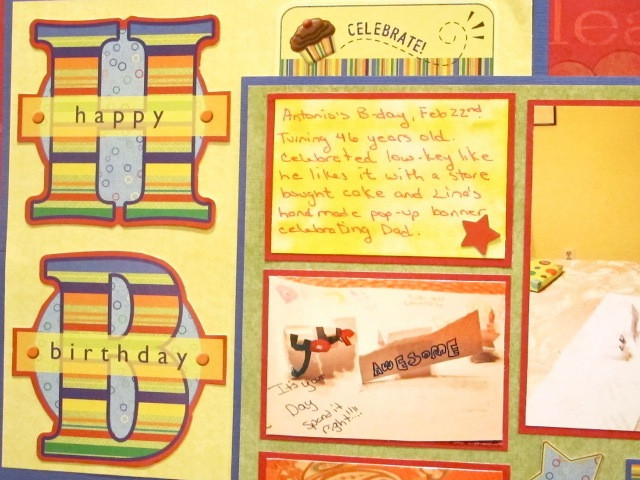 happy
birthday
CELEBRATE!
lea
Antonio's B-day, Feb 22nd.
Turning 46 years old.
Celebrated low-key like
he likes it with a store
bought cake and Lina's
handmade pop-up banner
celebrating Dad.
AWESOME
It's your
Day
Spend it
right!!!